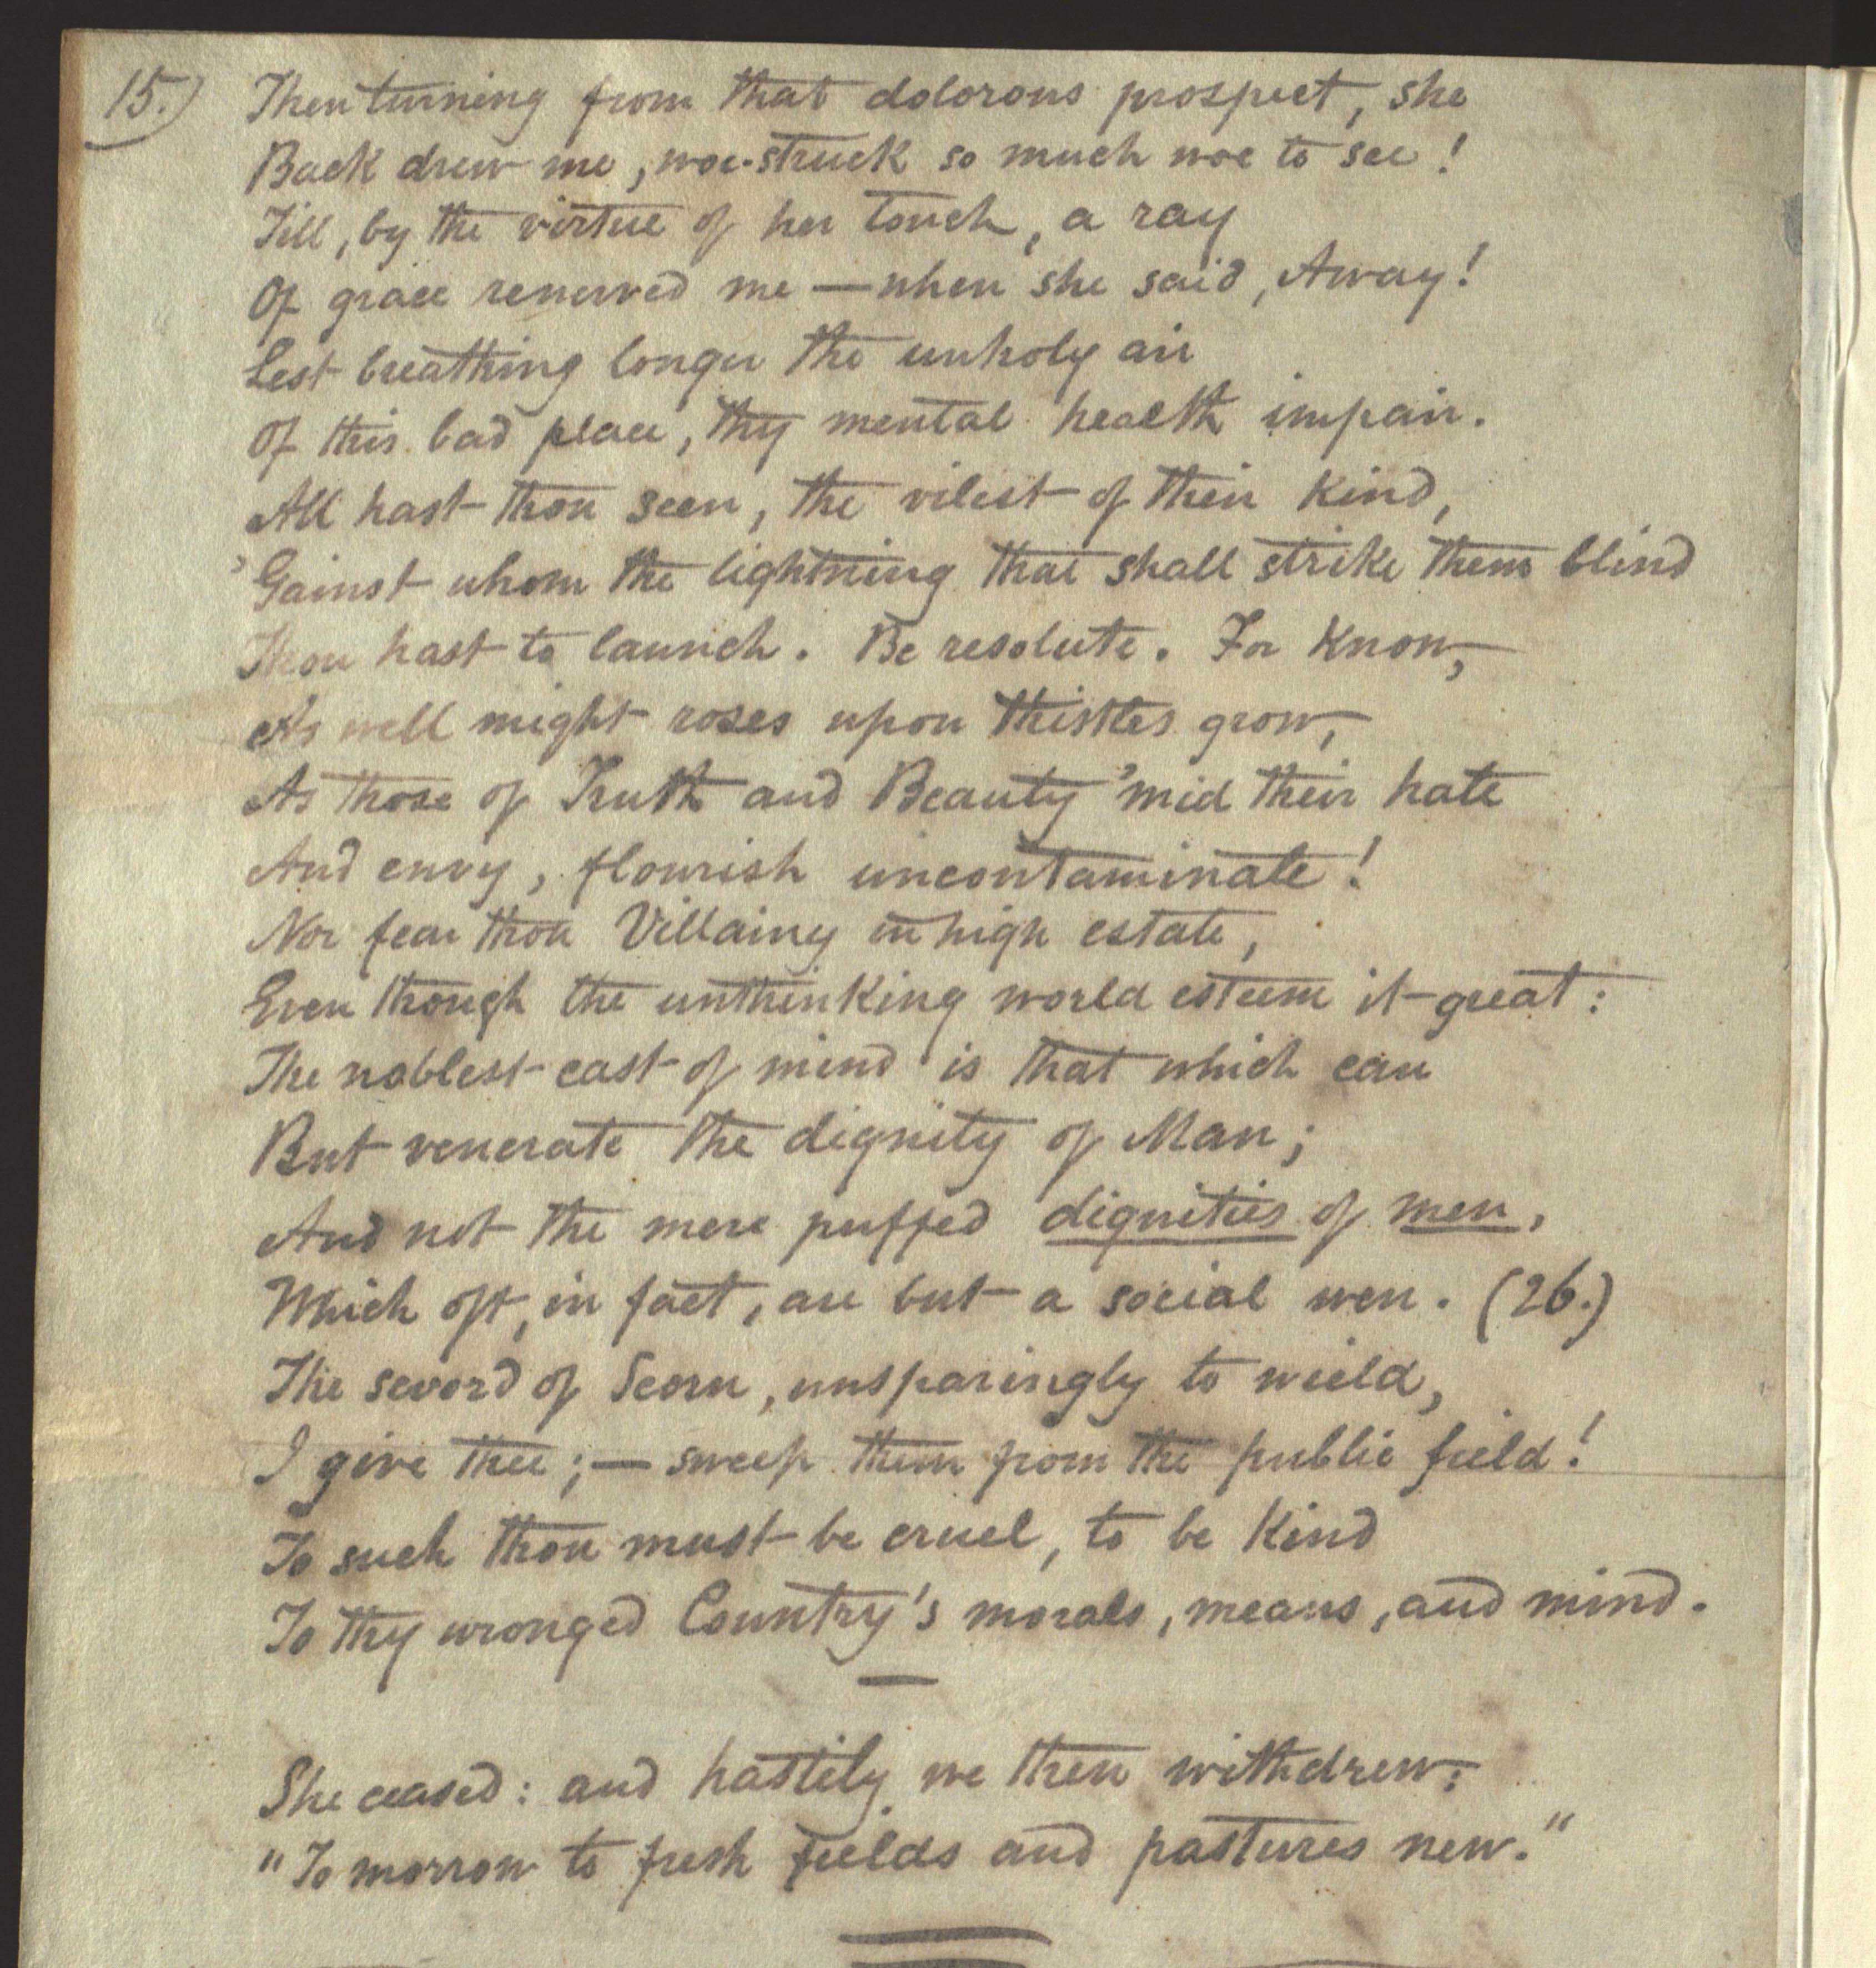 15.) Then turning from that dolorous prospect, she
Back drew me, woe-struck so much woe to see!
Till, by the virtue of her touch, a ray
Of grace renewed me — when she said, Away!
Lest breathing longer the unholy air
Of this bad place, thy mental health impair.
All hast thou seen, the vilest of their kind,
'Gainst whom the lightning that shall strike them blind
Thou hast to launch. Be resolute. For know,
As well might roses upon thistles grow,
As those of Truth and Beauty 'mid their hate
And envy, flourish uncontaminate!
Nor fear thou Villainy in high estate,
Even though the unthinking world esteem it great:
The noblest cast of mind is that which can
But venerate the dignity of Man;
And not the mere puffed dignities of men,
Which oft, in fact, are but a social wen. (26.)
The sword of Scorn, unsparingly to wield,
I give thee; — sweep them from the public field!
To such thou must be cruel, to be kind
To thy wronged Country's morals, means, and mind.
She ceased: and hastily we then withdrew;
"To morrow to fresh fields and pastures new."